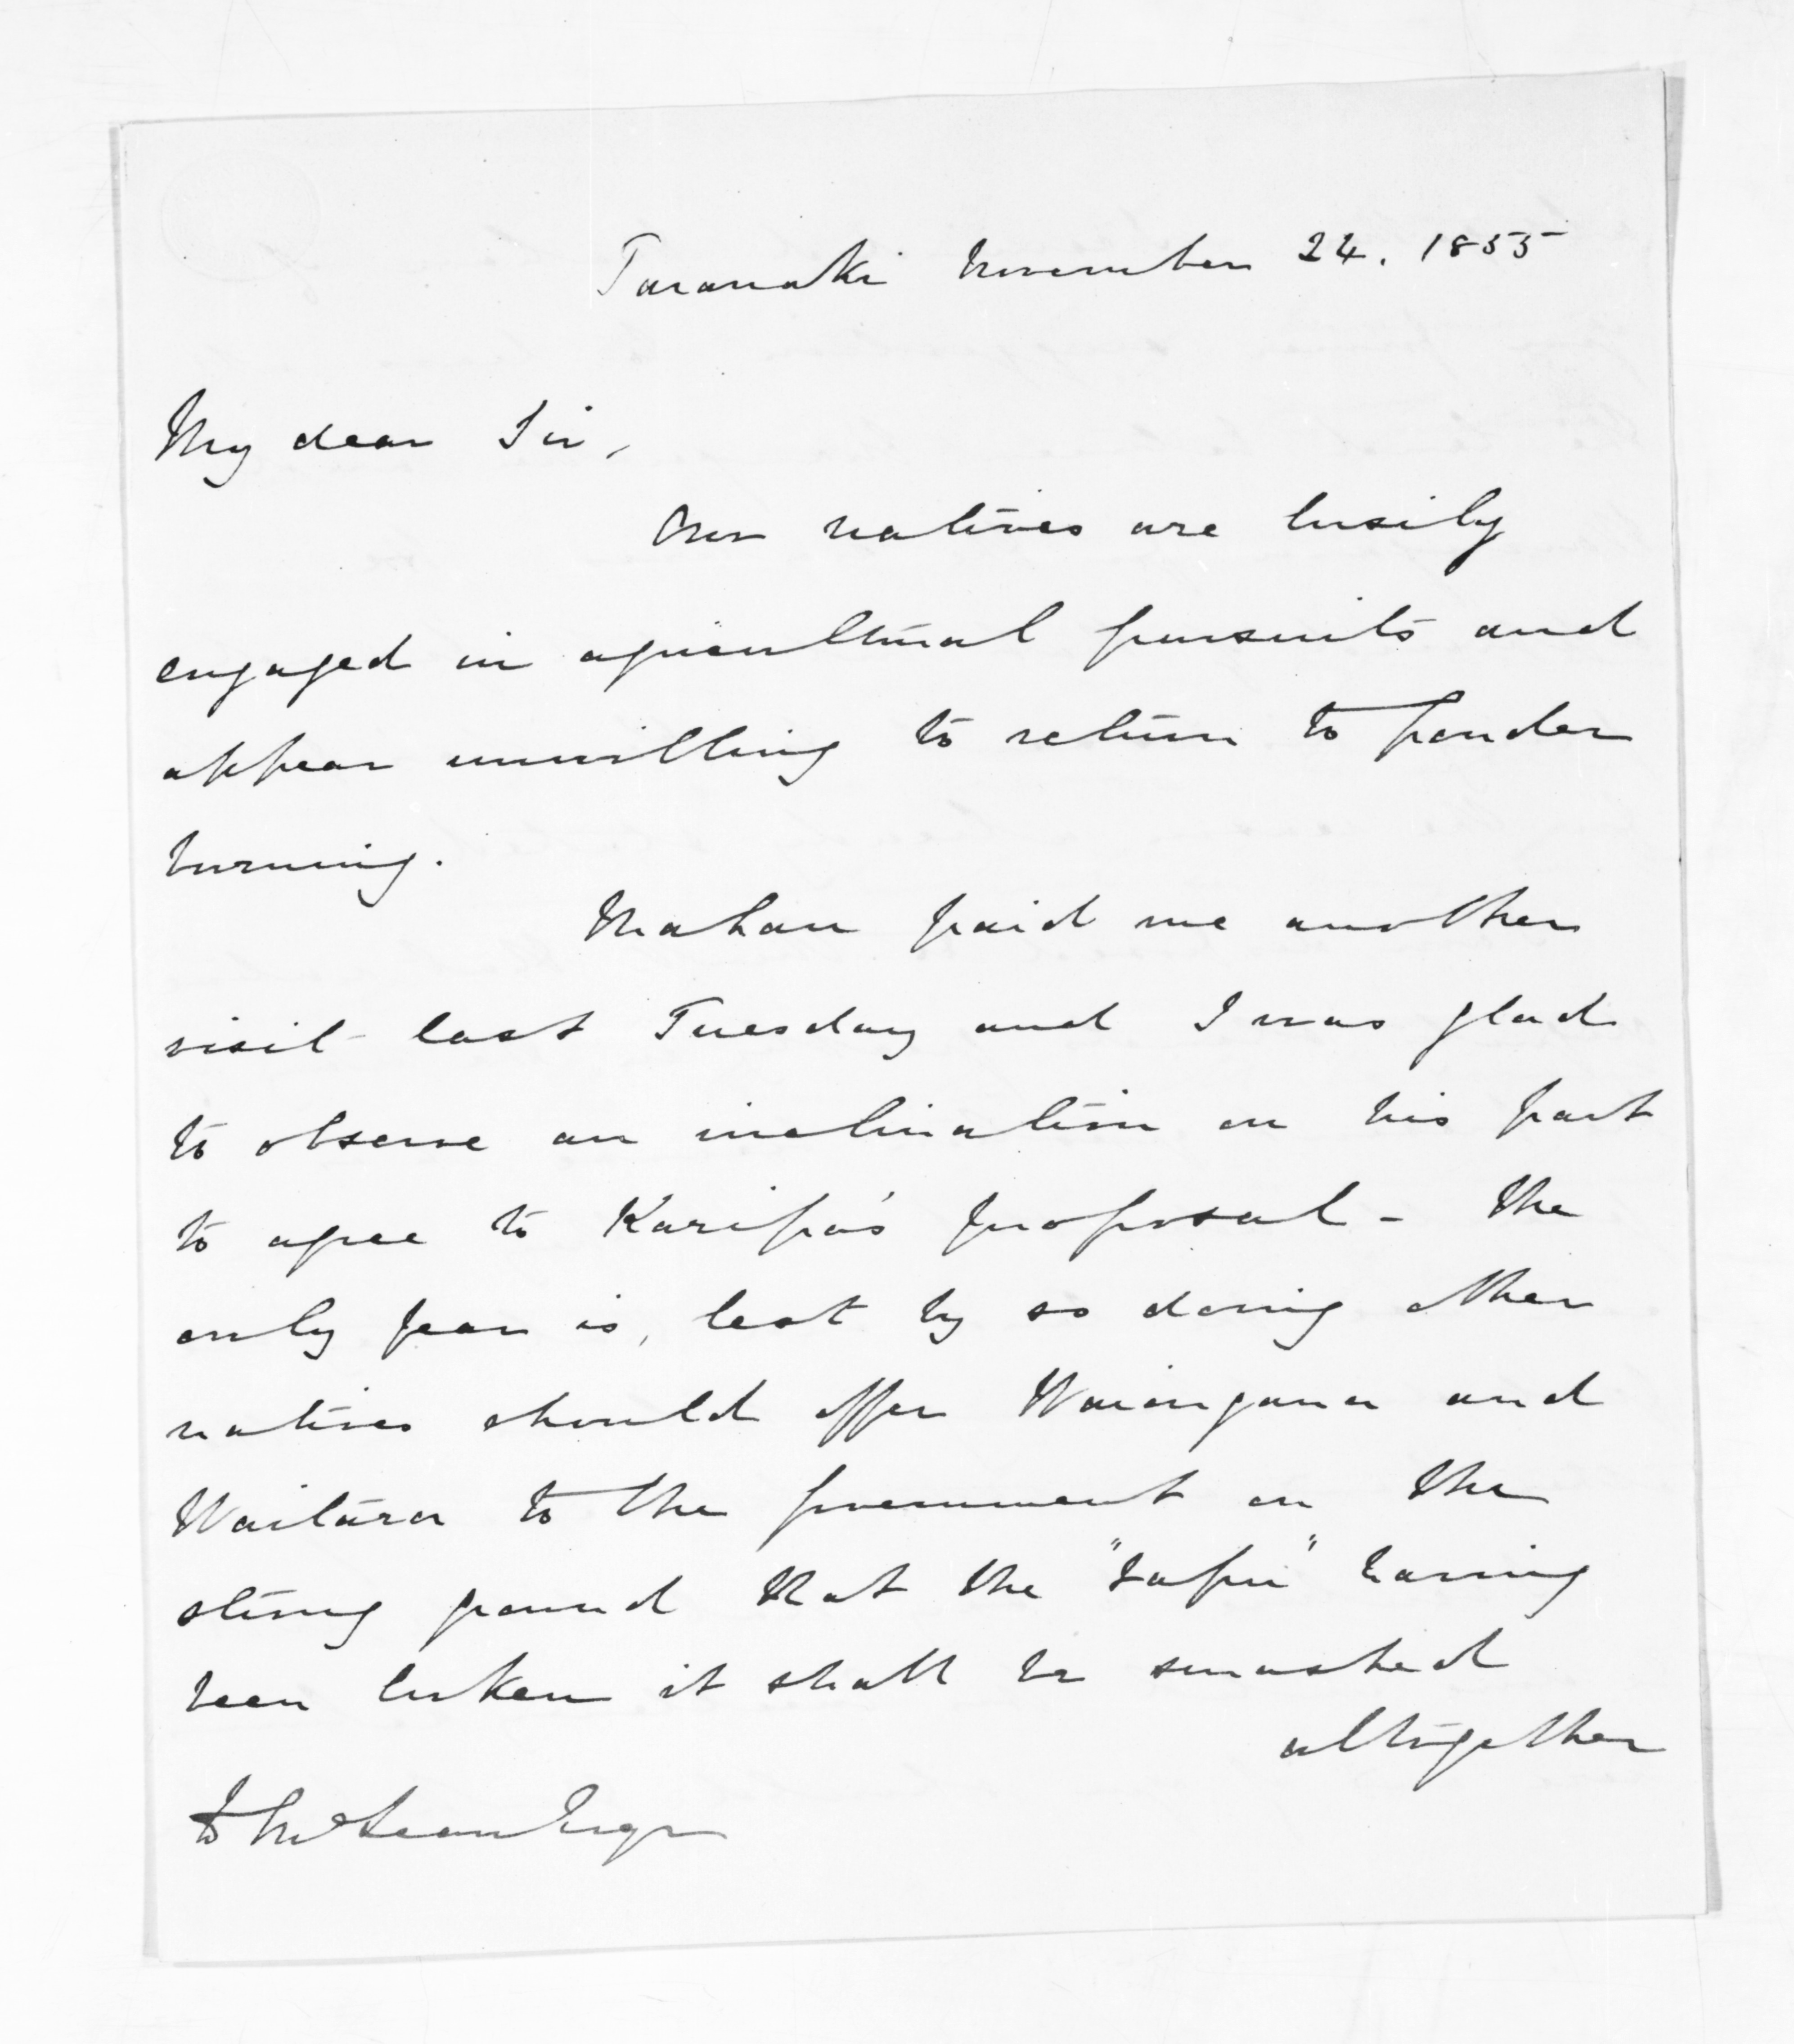 Taranaki November 24. 1855
My dear Sir,
Our natives are busily
engaged in agricultural pursuits and
appear unwilling to return to powder
burning.
Mahau paid me another
visit last Tuesday and I was glad
to observe an inclination on his part
to agree to Karipa's proposal - the
only fear is, lest by so doing other
natives should offer Waiongana and
Waitara to the government on the
strong ground that the "tapu" having
been broken it shall be smashed
altogether
McLean Esqr